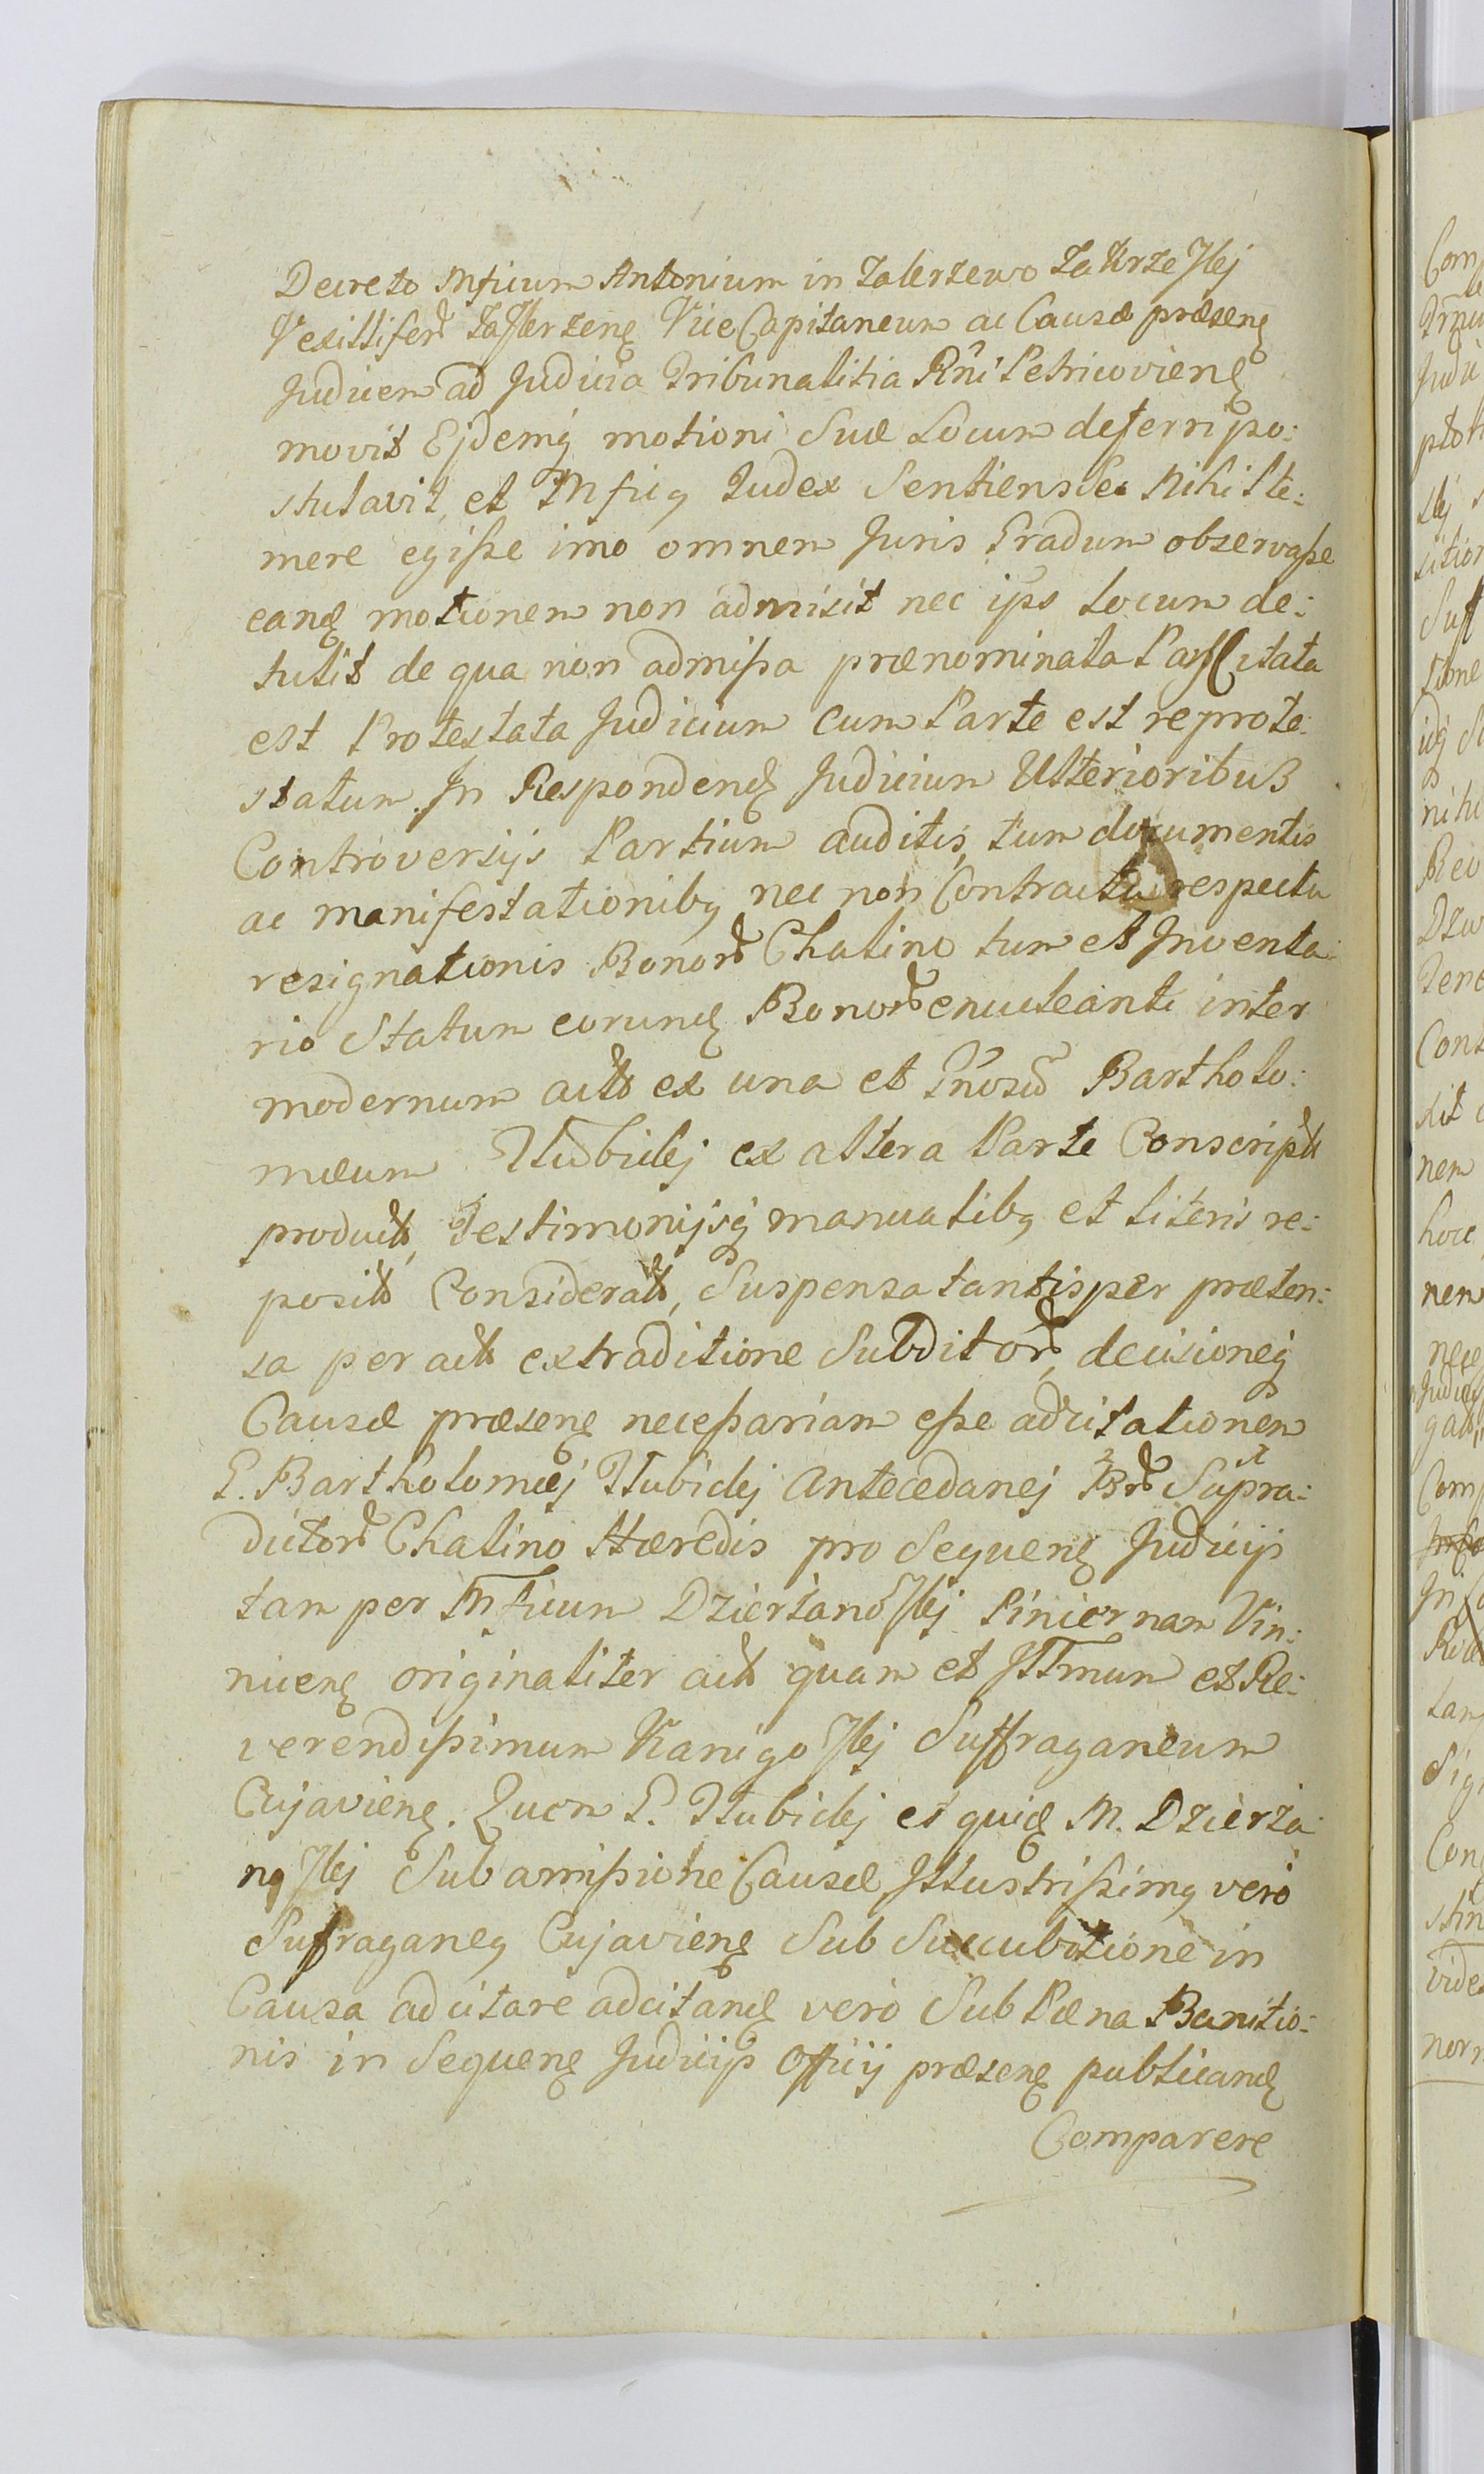 Decreto Mficum Antonium in Zakrzewo Zakrzewskj
Vexillifer Zakrzen Vice Capitaneum ac Causæ præsenę
Judicem ad Judicia Tribunalitia Rni Petricovienę
movit Ejdemq motioni Suæ Locum deferri po:
stulavit, et Mficq Judex Sentiens Se Nihil te:
mere egiße imo omnem Juris Gradum observaße
eandę motionem non admisit nec ips locum de:
tulit de qua non admißa prænominata Pars Citata
est Protestata Judicium cum Parte est reprote:
statum. In Respondendę Judicium Ulterioribuß
Controversijs Partium auditis, tum documentis
ac manifestationibq nec non Contractu respectu
resignationis Bonor Chalino tum et Inventa:
rio Statum eorundę Bonor enucleanti inter
modernum act ex una et Gnosum Bartholo:
mæum Dłubickj ex altera Parte Conscript
product, Testimonijsq manualibq et literis re:
posit Considerat, Suspensa tantisper præten:
sa per act extraditione Subditor, decisioneq
Causæ præsenę neceßariam eße adcitationem
G. Bartholomæj Dłubickj Antecedanej Br Supra:
dictor Chalino Hæredis pro Sequenę Judicijs
tam per Mficum Dzierżanowskj Pincernam Vin:
nicenę originaliter act quam et Illmum et Re:
verendißimum Kanigowskj Suffraganeum
Cujavienę. Quem G. Dłubickj et quidę M. Dzierża
nowskj Sub amißione Causæ Illustrißimq vero
Sufraganeq Cujavienę Sub Succubitione in
Causa adcitare adcitandę vero Sub Pæna Banitio:
nis in Sequenę Judicijs Officij præsenę publicandę
Comparere